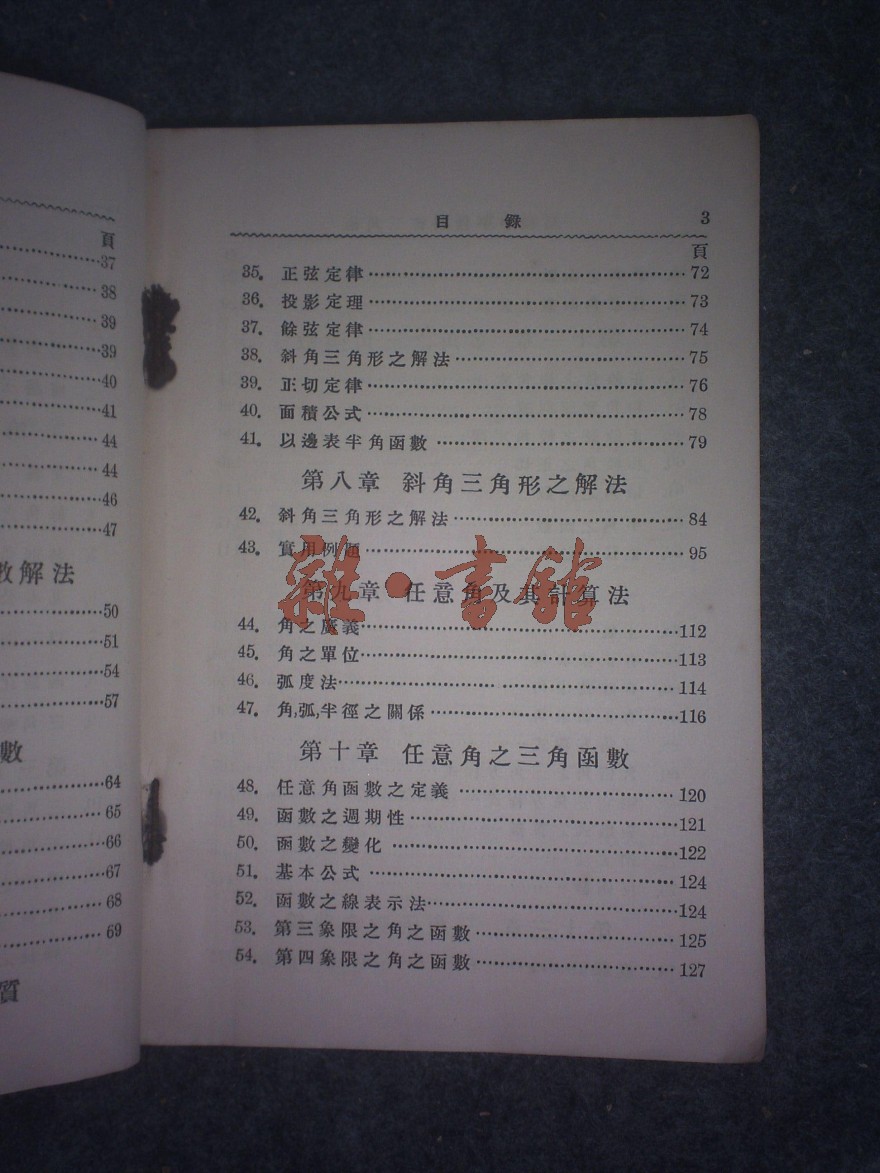 頁
37
38
39
39
40
41
44
44
46
47
數解法
50
51
54
57
數
64
65
66
67
68
69
質
目錄 3
頁
35. 正弦定律 72
36. 投影定理 73
37. 餘弦定律 74
38. 斜角三角形之解法 75
39. 正切定律 76
40. 面積公式 78
41. 以邊表半角函數 79
第八章 斜角三角形之解法
42. 斜角三角形之解法 84
43. 實用例題 95
雜·書館
第九章 任意角及其計算法
44. 角之廣義 112
45. 角之單位 113
46. 弧度法 114
47. 角,弧,半徑之關係 116
第十章 任意角之三角函數
48. 任意角函數之定義 120
49. 函數之週期性 121
50. 函數之變化 122
51. 基本公式 124
52. 函數之線表示法 124
53. 第三象限之角之函數 125
54. 第四象限之角之函數 127